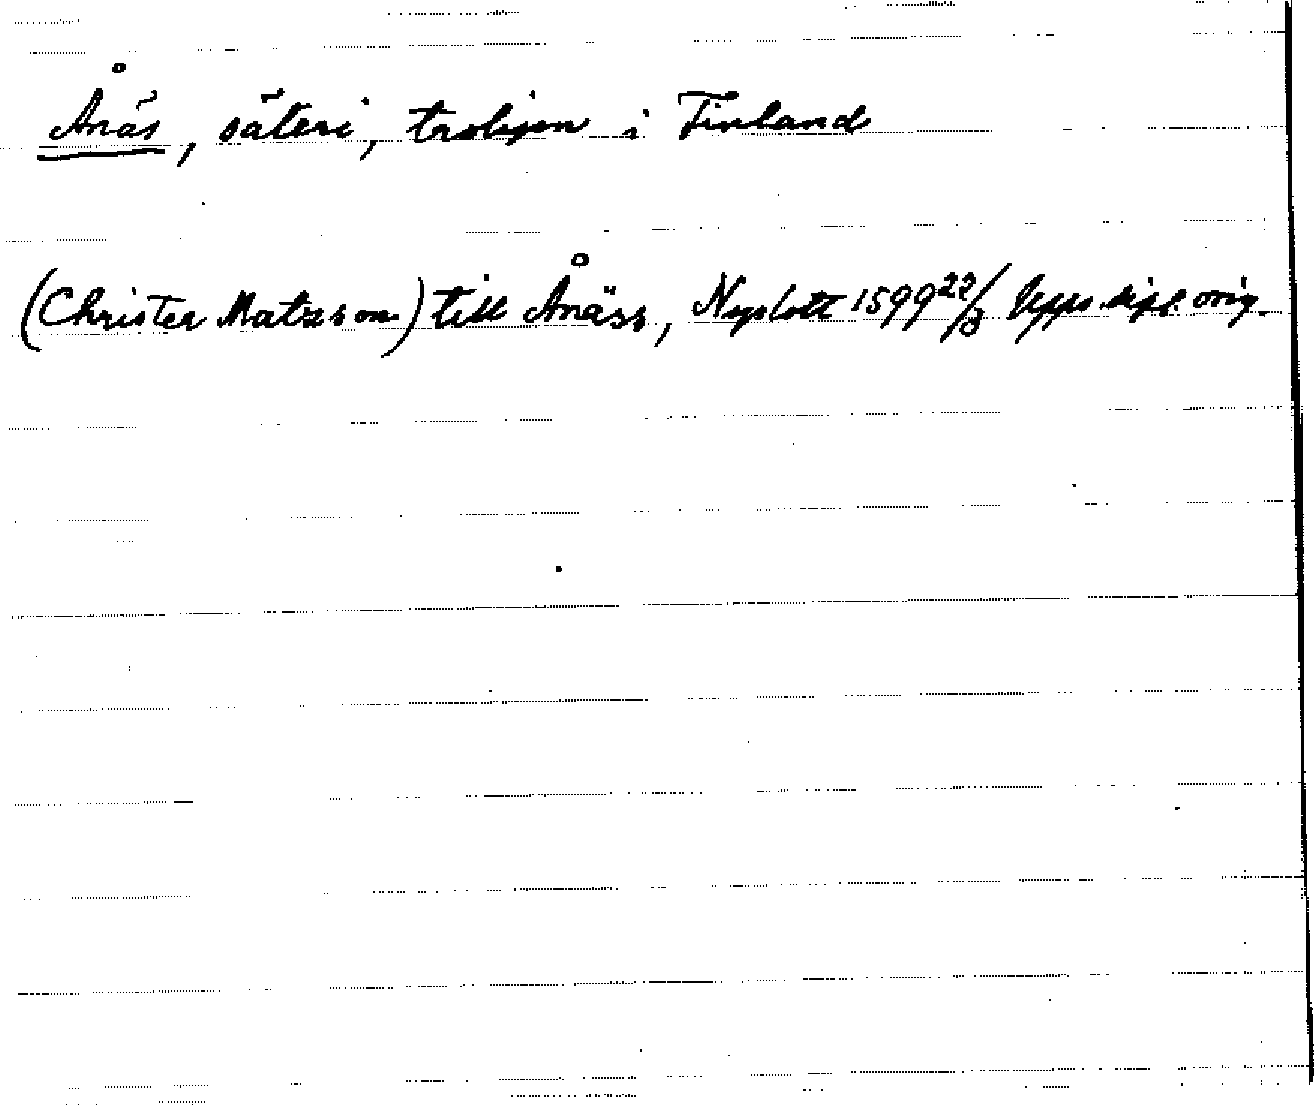 Ånäs, säteri, troligen i Finland
(Christer Matzson) till Ånäss, Nyslott 1599 22/3 Upps dipl. orig.